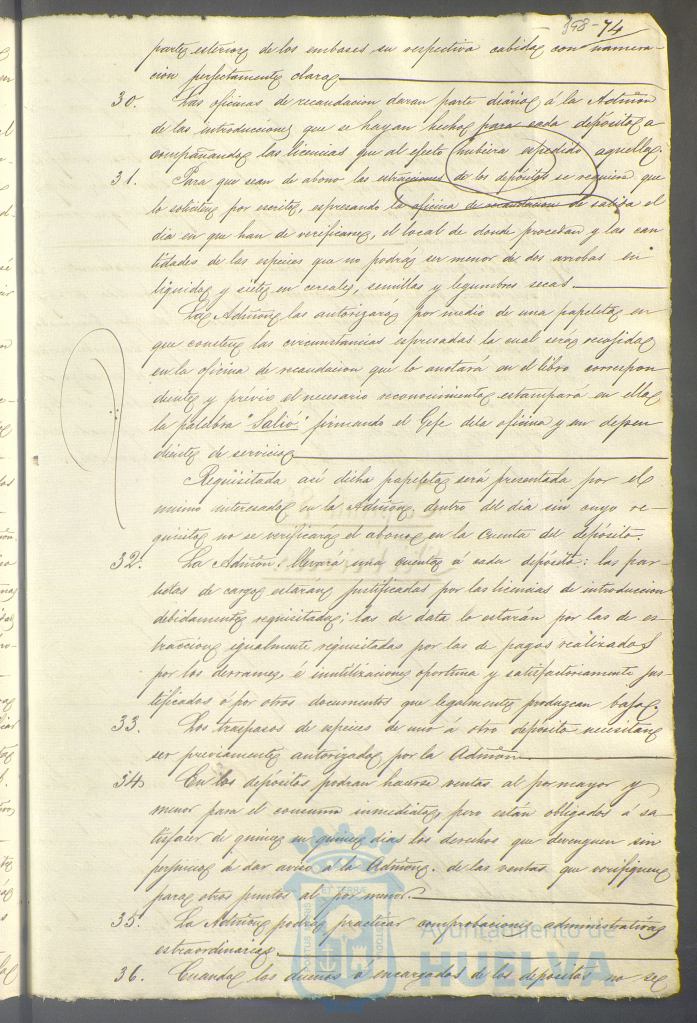 398-74
partes esteriores de los embases su respectiva cabida con numera-
cion perfectamente clara
30. Las oficinas de recaudacion daran parte diário á la Admñon
de las introducciones que se hayan hecho para cada depósito a
compañando las licencias que al efecto hubiera espedido aquella.
31. Para que sean de abono las estracciones de los depósitos se requiere que
lo soliciten por escrito, espresando la oficina de recaudacion de salida el
dia en que han de verificarse, el local de donde procedan y las can
tidades de las especies que no podrá ser menor de dos arrobas en
liquidos y siete en cereales, semillas y legumbres secas.
La Admñon las autorizará por medio de una papeleta en
que consten las circunstancias espresadas la cual será recojida
en la oficina de recaudacion que lo anotará en el libro correspon
diente y prévio el necesario reconocimiento estampará en ella
la palabra "Salió" firmando el Gefe dela oficina y un depen
diente de servicio
Reqüisitada asi dicha papeleta será presentada por el
mismo interesado en la Admñon. dentro del dia sin cuyo re-
quisito no se verificará el abono en la cuenta del depósito.
32. La Admñon. llevará una cuenta á cada depósito: las par-
tidas de cargo estaran justificadas por las licencias de introduccion
debidamente reqüisitadas; las de data lo estarán por las de es-
tracciones igualmente reqüisitadas por las de pagos realizados
por los derrames, é inutilizaciones oportuna y satisfactoriamente jus-
tificados ó por otros documentos que legalmente produzcan baja.
33. Los traspasos de especies de uno á otro depósito necesitan
ser previamente autorizados por la Admñon.
34 En los depósitos podran hacerse ventas al por mayor y
menor para el consumo inmediato, pero están obligados á sa-
tisfacer de quince en quince dias los derechos que devenguen sin
perjuicio de dar aviso á la Admñon. de las ventas que verifiquen
para otros puntos al por menor.
35. La Admñon podrá practicar comprobaciones administrativas
estraordinarias.
36. Cuando los dueños ó encargados de los depositos no se
Ayuntamiento de
HUELVA